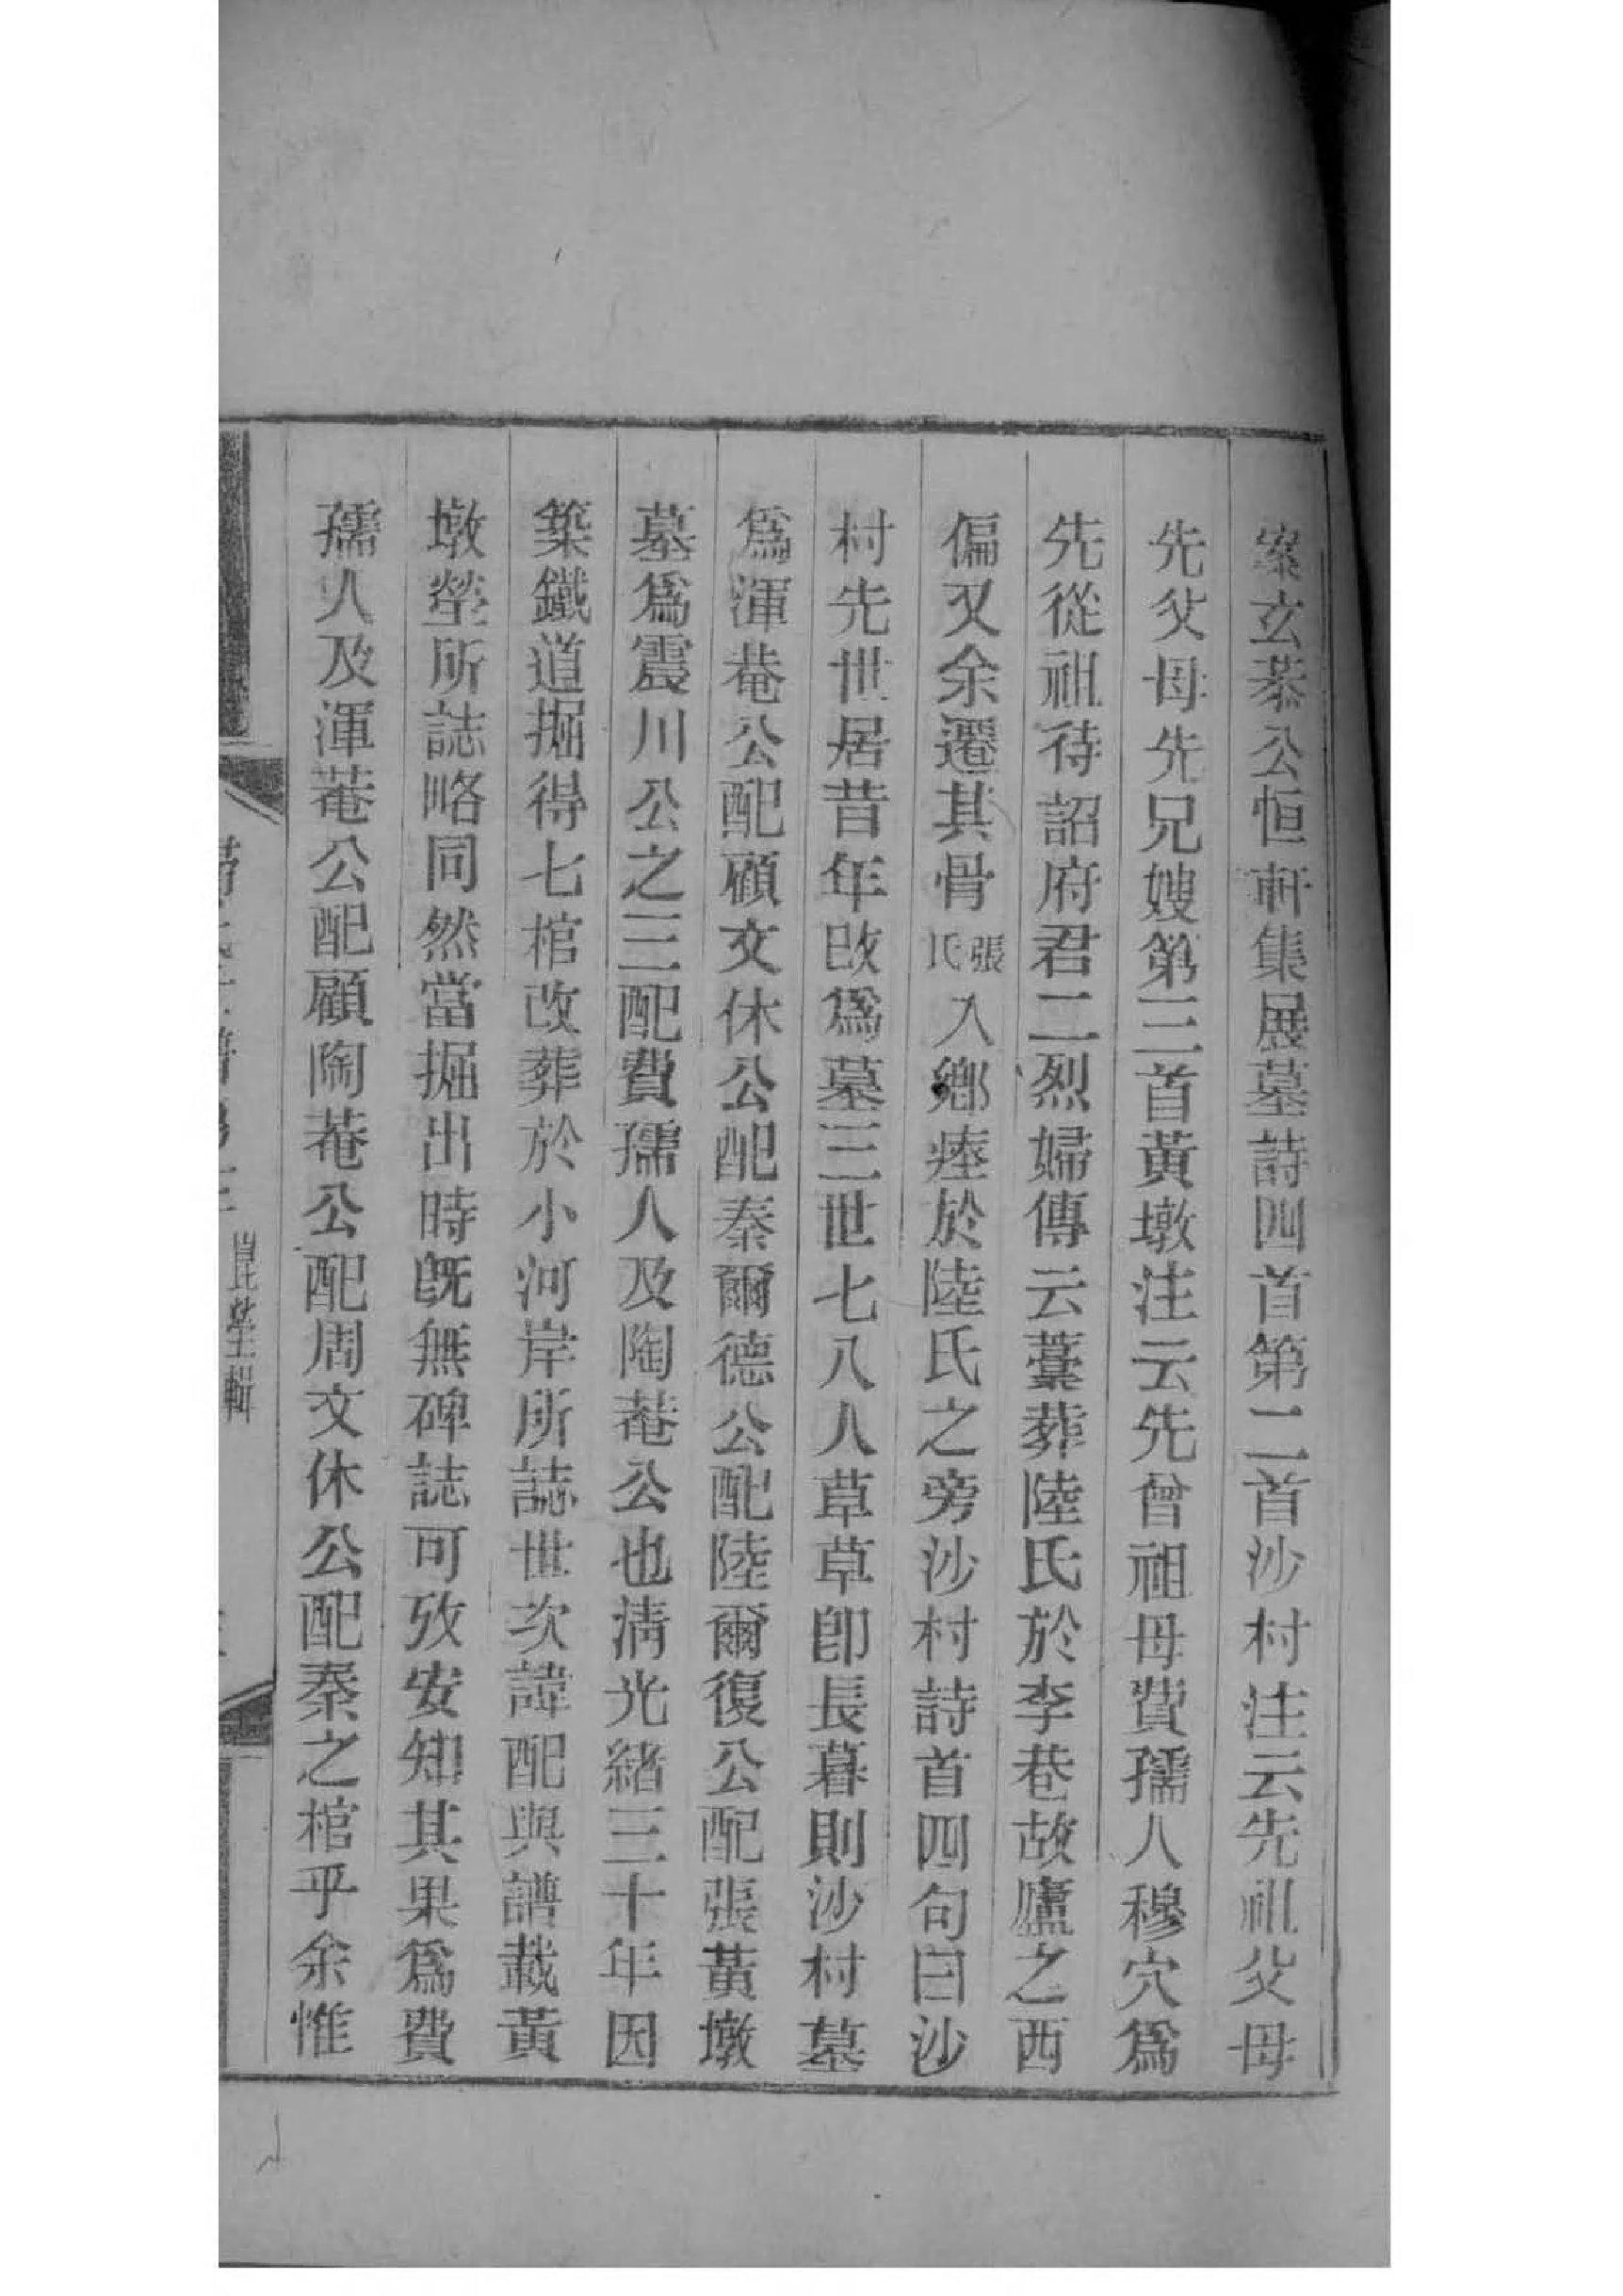 案玄恭公恒軒集展墓詩四首第二首沙村注云先祖父母
先父母先兄嫂第三首黃墩注云先曾祖母費孺人穆穴爲
先從祖待詔府君二烈婦傳云藁葬陸氏於李巷故廬之西
偏又余遷其骨張氏入鄉瘞於陸氏之旁沙村詩首四句曰沙
村先世居昔年改爲墓三世七八人草草卽長暮則沙村墓
爲渾菴公配顧文休公配秦爾德公配陸爾復公配張黃墩
墓爲震川公之三配費孺人及陶菴公也淸光緒三十年因
築鐵道掘得七棺改葬於小河岸所誌世次諱配與譜載黃
墩塋所誌略同然當掘出時旣無碑誌可攷安知其果爲費
孺人及渾菴公配顧陶菴公配周文休公配秦之棺乎余惟